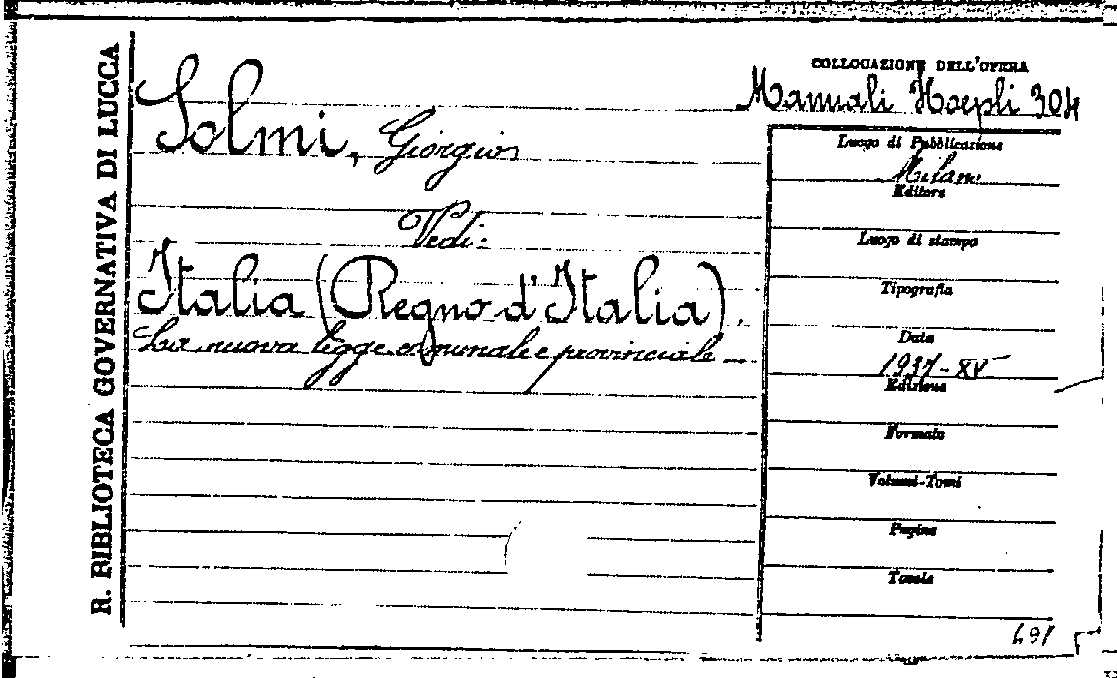 R. BIBLIOTECA GOVERNATIVA DI LUCCA
COLLOCAZIONE DELL'OPERA
Manuali Hoepli 304
Solmi, Giorgio
Vedi:
Italia (Regno d'Italia).
La nuova legge comunale e provinciale —
Luogo di Pubblicazione
Milano
Editore
Luogo di stampa
Tipografia
Data
1937-XV
Edizione
Formato
Volumi-Tomi
Pagine
Tavole
691